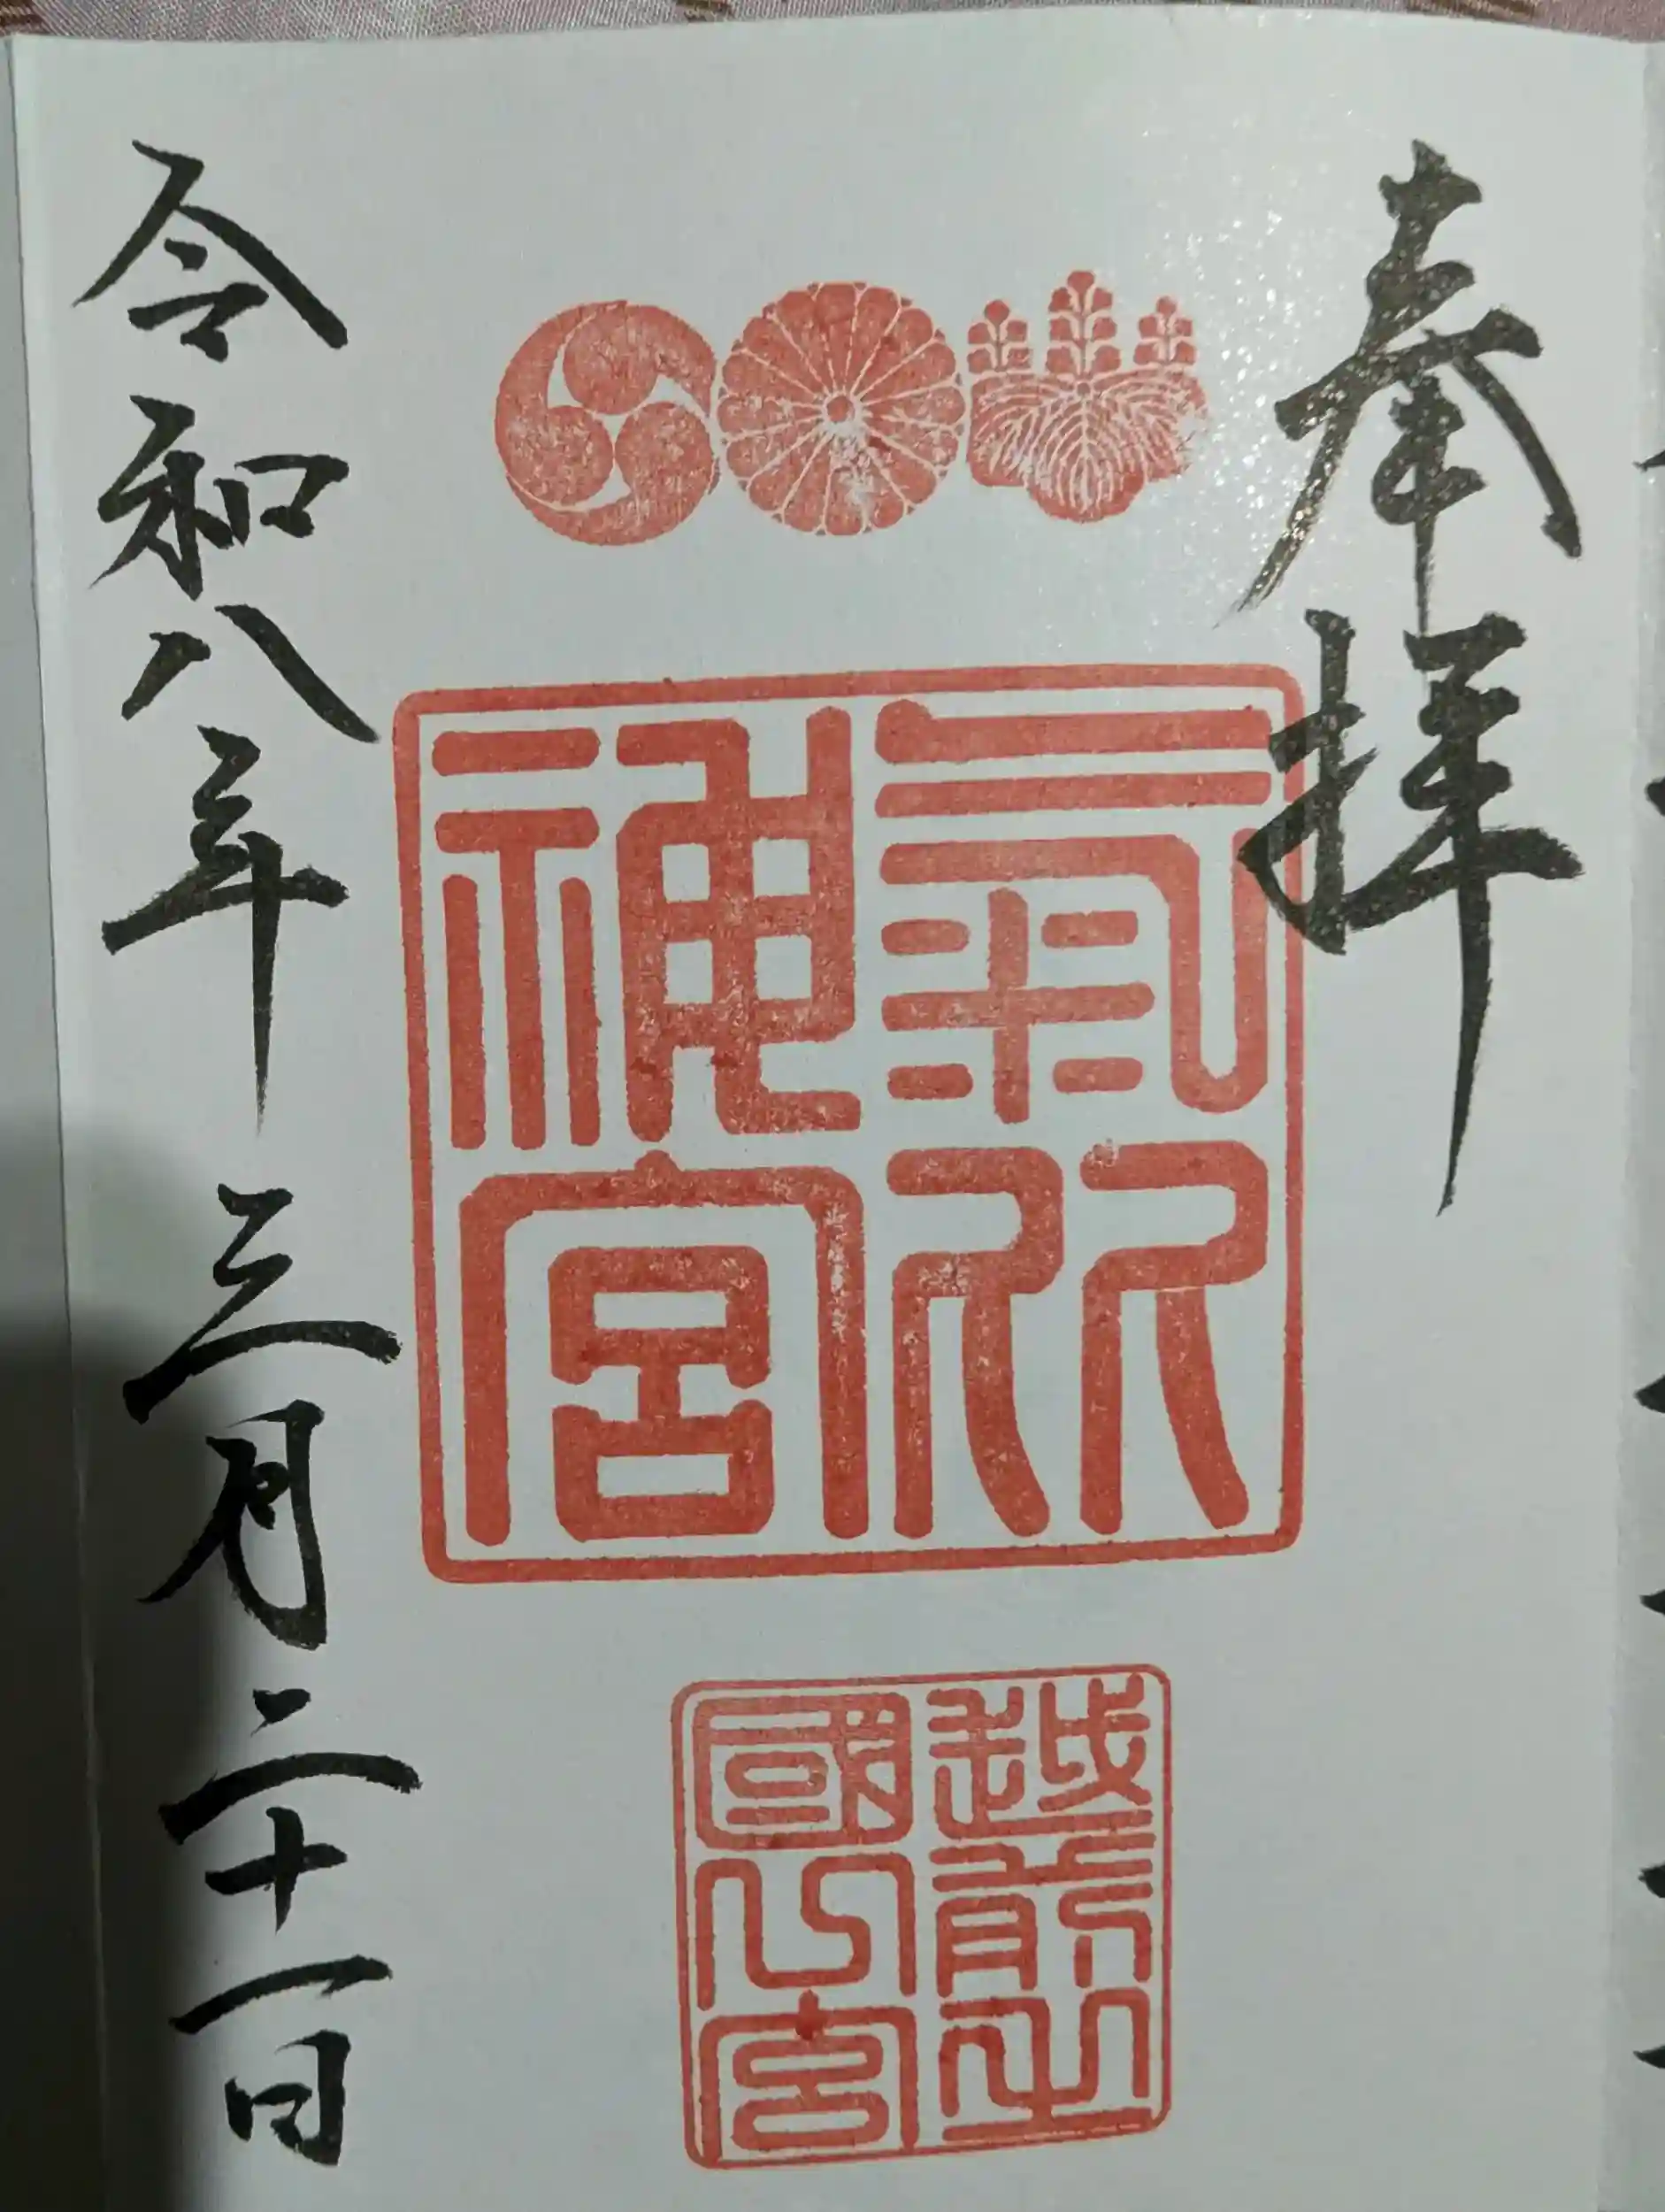 奉拝
氣比
神宮
越前
國
宮
令和八年三月二十一日